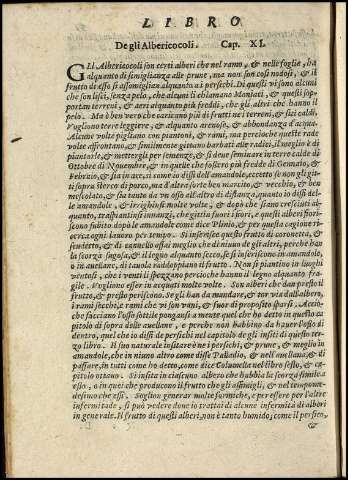 LIBRO
De gli Albericocoli. Cap. XI.
GLI Albericocoli son certi alberi che nel ramo, & nelle foglie, ha
alquanto di simiglianza alle prune, ma non son cosi nodosi, & il
frutto di esso si assomiglia alquanto a i persichi. Di questi vi sono alcuni
che son lisci, senza pelo, che alcuni li chiamano Maniati, & questi sop
portam terreni, & aeri alquanto più freddi, che gli altri che hanno il
pelo. Ma è ben vero che caricano più di frutti ne i terreni, & siti caldi.
Vogliono terre leggiere, & alquanto arenose, & abbondanza d'acqua.
Alcune volte pigliano con piantoni, & rami, ma percioche queste rade
volte affrontano, & similmente gittano barbati alle radici, il meglio è di
piantarle, & mettergli per semenze, & si dene seminare in terre calde di
Ottobre di Nouembre, & in quelle che fossero più fredde di Gennaio, &
Febrzio, & sia in acce, si come io dissi dell'amandole, eccetto se non gli git
ti sopra sterco di porco, ma d'altra sorte ben marcito, & vecchio, & ben
mescolato, & sia tanto da vn osso all'altro di distanza quanto io dissi del
le amandole, & irrighinsi molte volte, & dapò che siano cresciuti al-
quanto, traspiantinsi innanzi, che gittin fuori i fiori, e questi alberi fiori-
scono subito dapò le amandole come dice Plinio, & per questa cagione ri-
cerca ogni lauoro per tempo. Si inserisce questo frutto di coronetta, &
scudetto, & di cannello assai meglio che di niuno de gli altri, perche han
la scorza sugosa, & il legno alquanto secco, & si inseriscono in amandole,
o in auellane, di tauola raddoppiano il frutto. Non si piantino in luoghi
ventosi, che i venti li spezzano percioche hanno il legno alquanto fra-
gile. Vogliono esser in acquati molte volte. Son alberi che dan presto il
frutto, & presto periscono. Se gli han da mondare, & tor via dall'albero,
i rami secchi, e rami che vi son vani, & suor di proposito sparsi. Accio-
che facciano l'osso sottile pongansi a mente quel che ho detto in questo ca
pitolo di sopra delle auellane, e perche non habbino da hauer l'osso di
dentro, quel che io dissi de persichi nel capitolo de gli insiti di questo ter
zo libro. Il suo naturale insitare è ne i persichi, & prune, & meglio in
amandole, che in niuno altro come disse Palladio, & nell'auellana, & di
passare, in tutti come ho detto, come dice Columella nel libro sesto, & ca-
pitolo ottauo. Si insita in ciascuno albero che habbia la scorza simile a
esso, o in quei che producono il frutto che gli assimigli, & nel tempo un-
desimo che essi. Soglion generar molte formiche, e per essere per l'altre
infermitade, si può vedere doue io trattai di alcune infermità di alberi
in generale. Il frutto di questi alberi, non è tanto humido, come il persico,
&